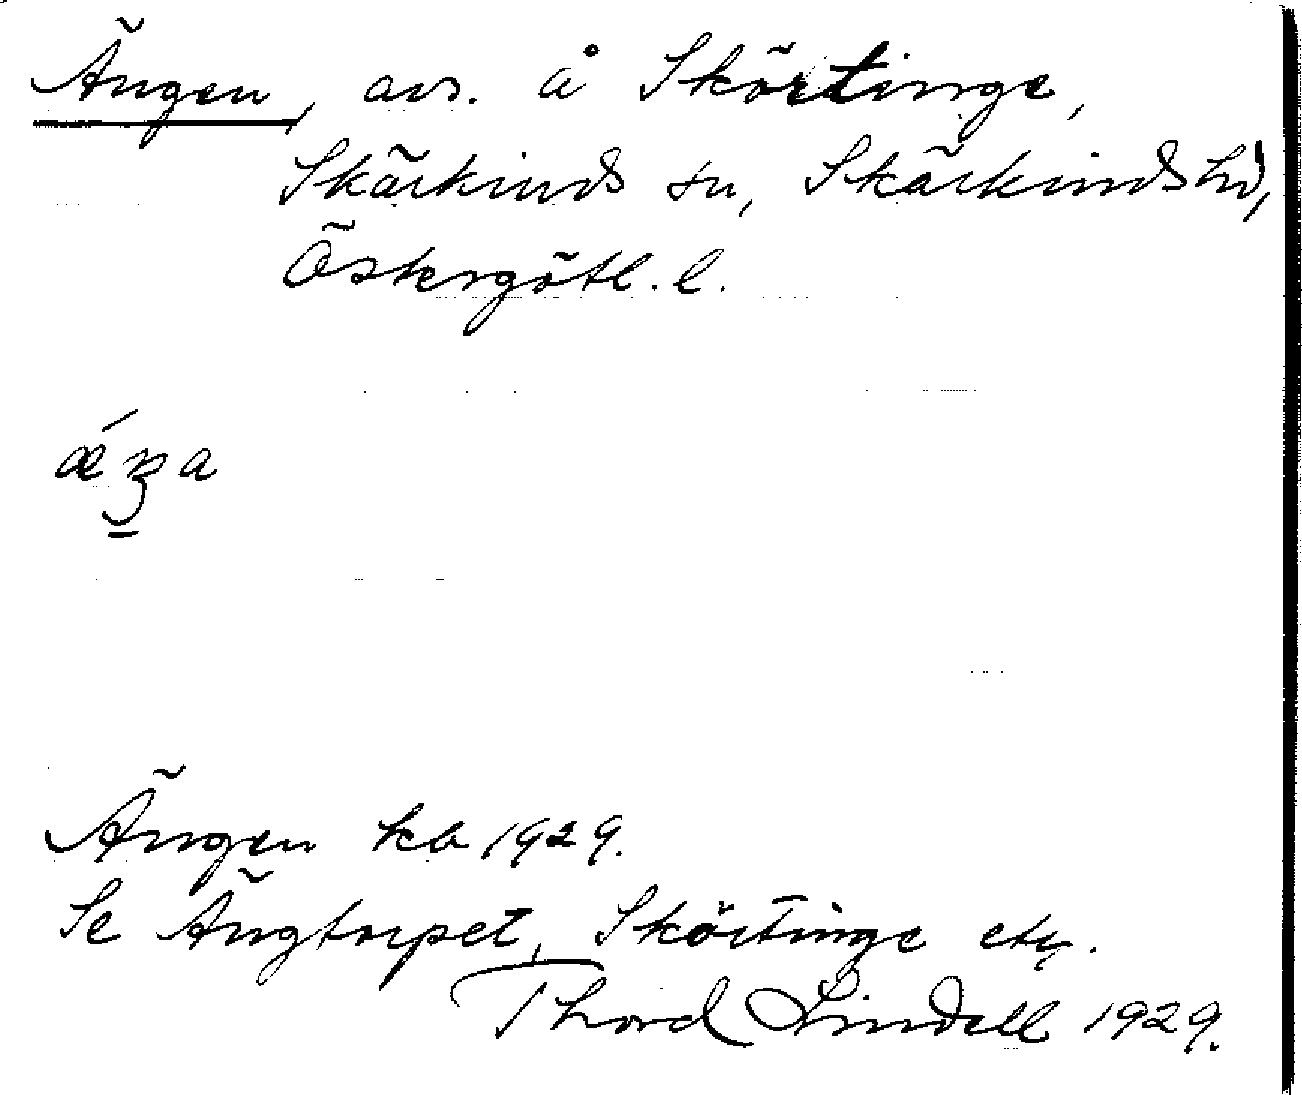 Ängen, avs. å Skörtinge,
Skärkinds sn, Skärkinds hd,
Östergötl. l.
Ängen kb 1929.
Se Ängtorpet, Skörtinge etc.
Thord Lindell 1929.